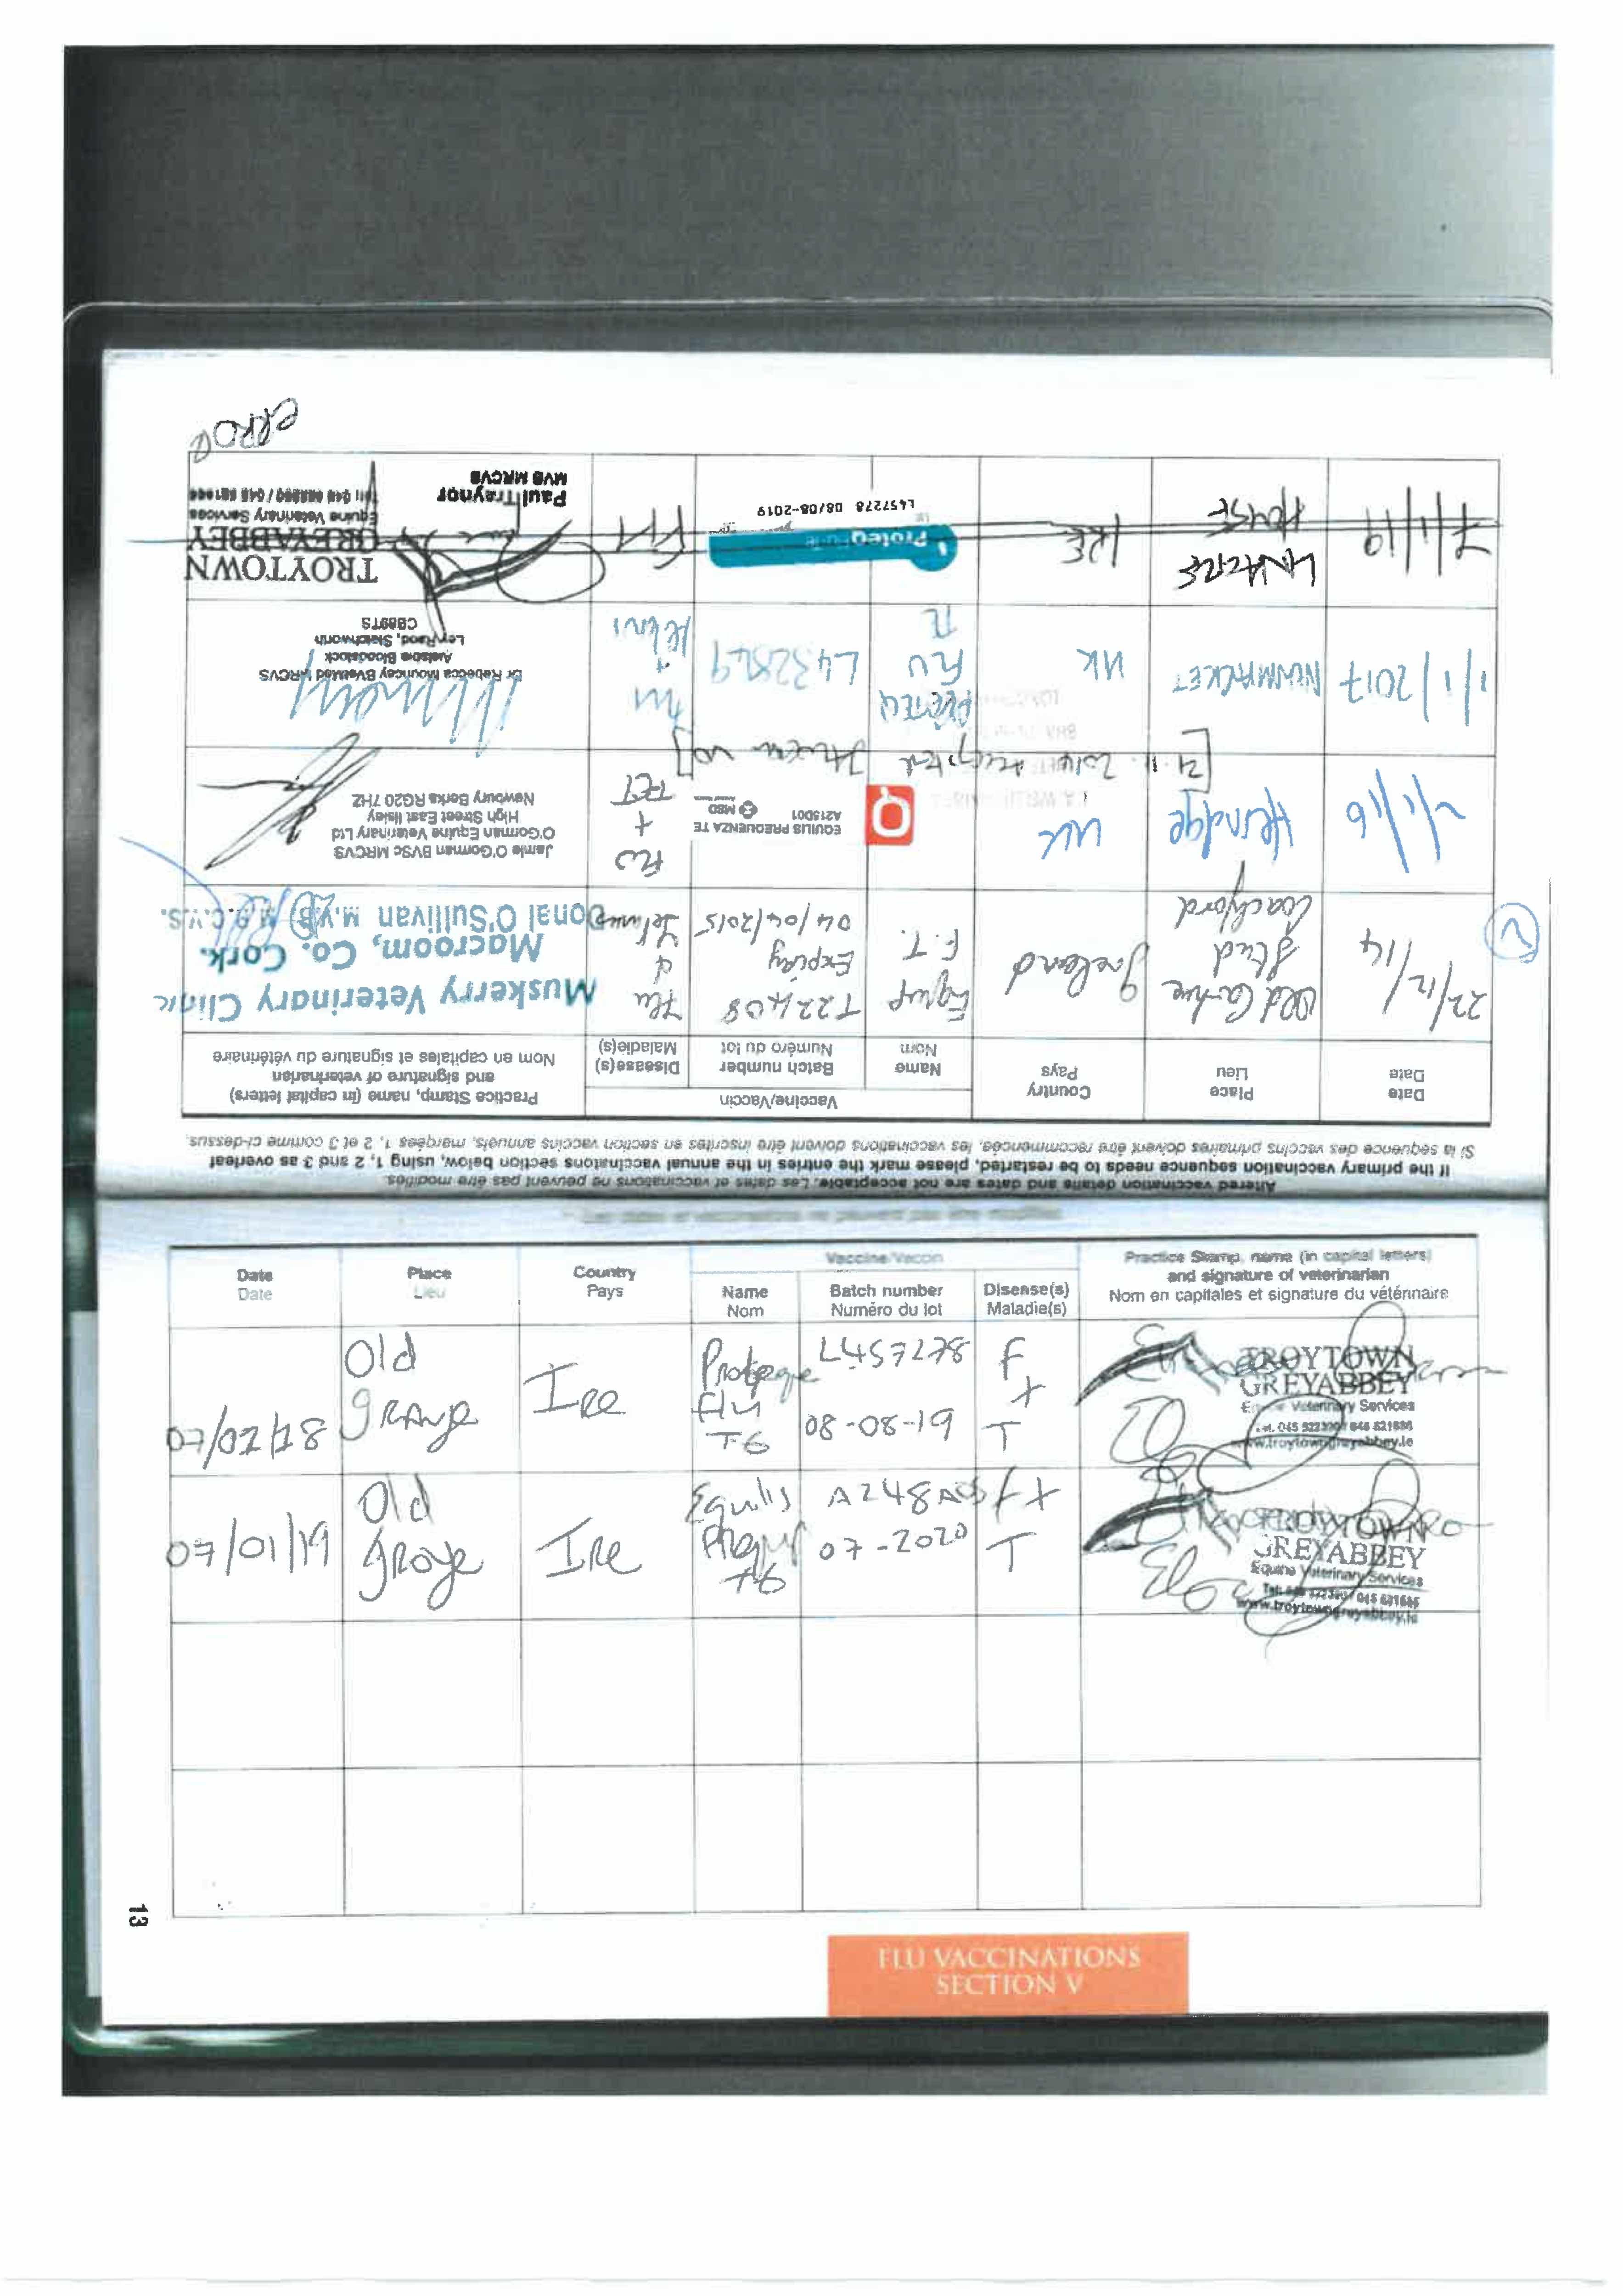 Altered vaccination details and dates are not acceptable. Les dates et vaccinations ne peuvent pas être modifiés.
If the primary vaccination sequence needs to be restarted, please mark the entries in the annual vaccinations section below, using 1, 2 and 3 as overleaf
Si la séquence des vaccins primaires doivent être recommencées, les vaccinations doivent être inscrites en section vaccins annuels, marqées 1, 2 et 3 comme ci-dessus.
Date
Date
Place
Lieu
Country
Pays
Vaccine/Vaccin
Name
Nom
Batch number
Numéro du lot
Disease(s)
Maladie(s)
Practice Stamp, name (in capital letters)
and signature of veterinarian
Nom en capitales et signature du vétérinaire
22/12/14
Stud
Coachford
Ireland
Equip
F.T.
T22408
Expiry
04/04/2015
Flu
Muskerry Veterinary Clinic
Macroom, Co. Cork.
Donal O'Sullivan M.V.B. M.R.C.V.S.
UK
EQUILIS PREQUENZA TE
A215D01
MSD
FLU
+
TET
Jamie O'Gorman BVSc MRCVS
O'Gorman Equine Veterinary Ltd
High Street East Ilsley
Newbury Berks RG20 7HZ
1/1/2017
NEWMARKET
UK
PROTEQ
FLU
TE
Flu
+
Dr Rebecca Mouncey BVetMed MRCVS
Bloodstock
Ley Road, Stetchworth
CB89TS
7/1/19
HOUSE
IRE
ProteqFlu
L457278 08/08-2019
TROYTOWN
GREYABBEY
Equine Veterinary Services
Paul Traynor
MVB MRCVS
ERROR
Date
Date
Place
Lieu
Country
Pays
Vaccine/Vaccin
Name
Nom
Batch number
Numéro du lot
Disease(s)
Maladie(s)
Practice Stamp, name (in capital letters)
and signature of veterinarian
Nom en capitales et signature du vétérinaire
07/02/18
Old
Grange
Ire
Flu
TE
L457278
08-08-19
F
+
T
TROYTOWN
GREYABBEY
Equine Veterinary Services
www.troytowngreyabbey.ie
07/01/19
Old
Ire
Equilis
TE
07-2020
F +
T
TROYTOWN
GREYABBEY
Equine Veterinary Services
www.troytowngreyabbey.ie
13
FLU VACCINATIONS
SECTION V